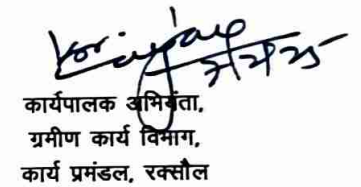 कार्यपालक अभियंता,
ग्रमीण कार्य विभाग,
कार्य प्रमंडल, रक्सौल